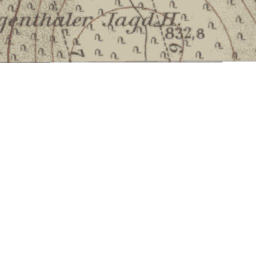 genthaler Jagd-H.
832,8